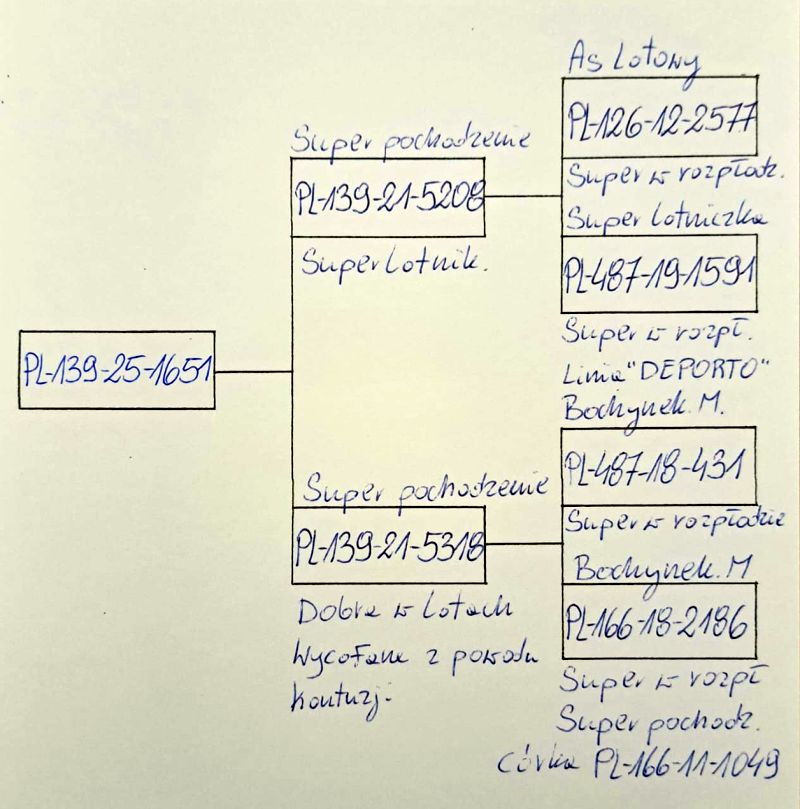 As Lotowy
PL-126-12-2577
Super w rozpłodz.
Super pochodzenie
PL-139-21-5208
Super Lotnik.
Super Lotniczka
PL-487-19-1591
Super w rozpł.
Linia "DEPORTO"
Bochynek. M.
PL-139-25-1651
PL-487-18-431
Super w rozpłodzie
Super pochodzenie
PL-139-21-5318
Dobra w Lotach
Wycofana z powodu
kontuzj.
Bochynek. M
PL-166-18-2186
Super w rozpł
Super pochodz.
córka PL-166-11-1049